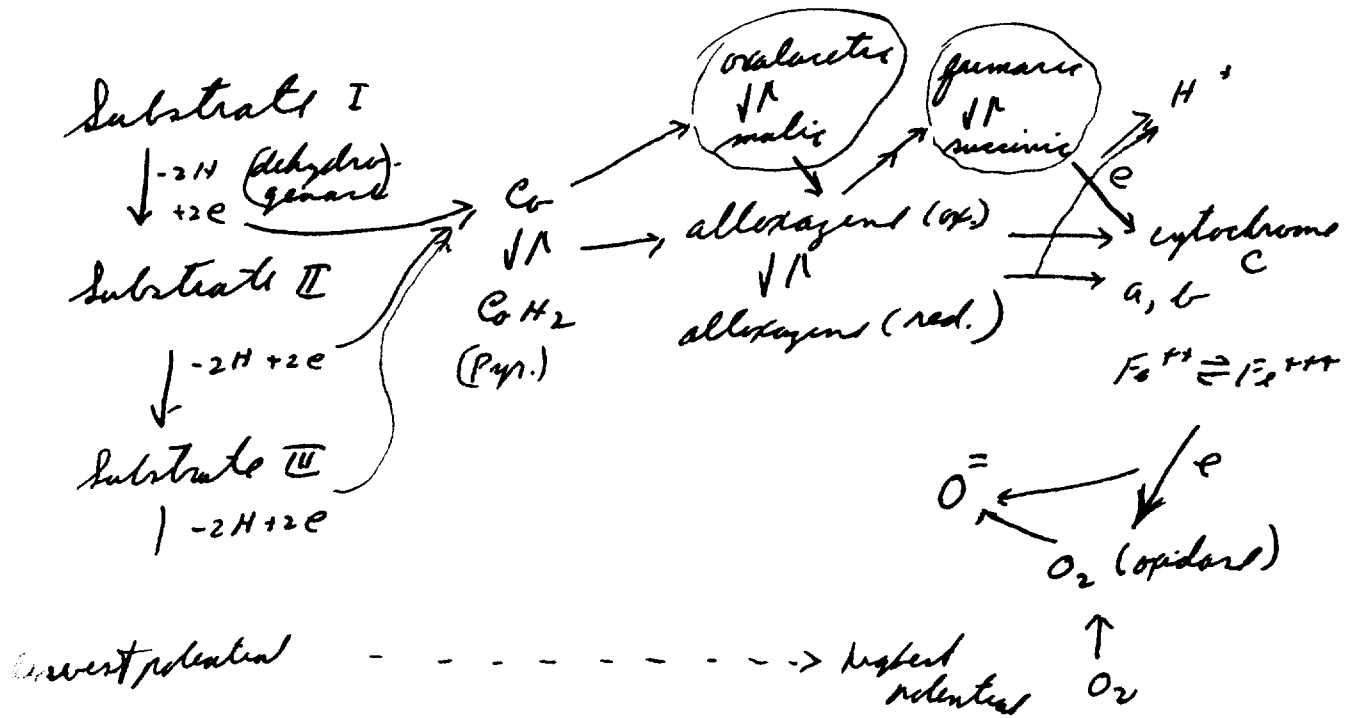 Substrate I
-2H (dehydro-
+2e genase)
Substrate II
-2H +2e
Substrate III
-2H +2e
Co
↓↑
CoH₂
(Pyr.)
oxalacetic
↓↑
malic
fumaric
↓↑
succinic
alloxazine (ox.)
↓↑
alloxazine (red.)
H⁺
e
cytochrome
c
a, b
Fe⁺⁺ ⇌ Fe⁺⁺⁺
e
O⁼
O₂ (oxidase)
↑
O₂
lowest potential - - - - - - -> highest
potential